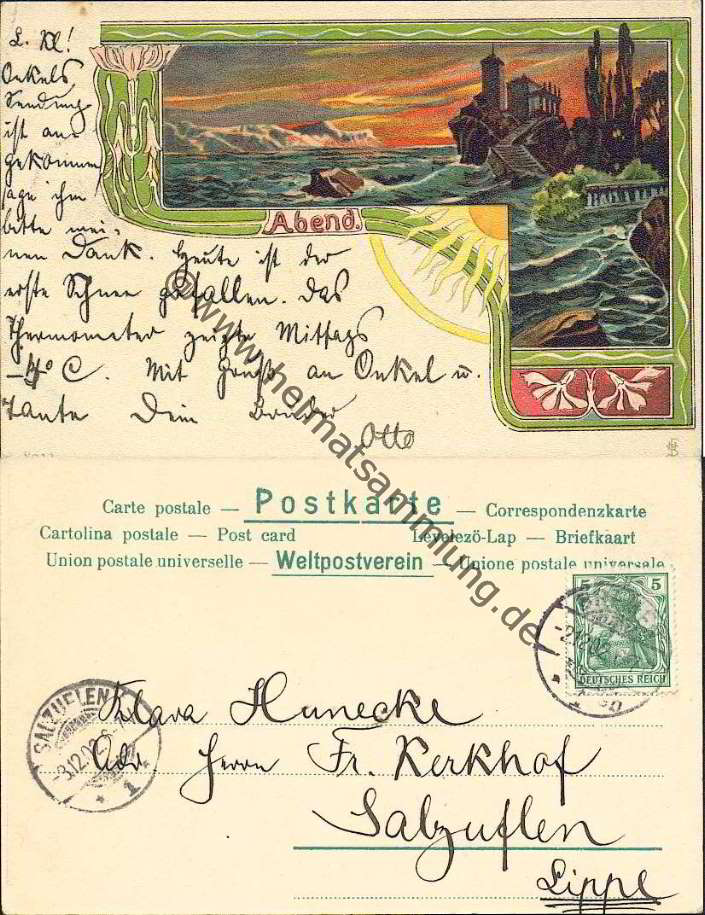 L. Kl!
Onkels
Sendung
ist an
gekommen
sage ihm
bitte mei-
nen Dank. Heute ist der
erste Schnee gefallen. Das
Thermometer zeigte Mittags
-4° C. Mit Gruß an Onkel u.
Tante Dein Bruder
Otto
Abend.
©www.heimatsammlung.de
Carte postale — Postkarte — Correspondenzkarte
Cartolina postale — Post card Levelezö-Lap — Briefkaart
Union postale universelle — Weltpostverein — Unione postale universale
5 5
DEUTSCHES REICH
2.12.02
SALZUFLEN
3.12.02
1
Klara Hunecke
Adr. Herrn Fr. Kerkhof
Salzuflen
Lippe